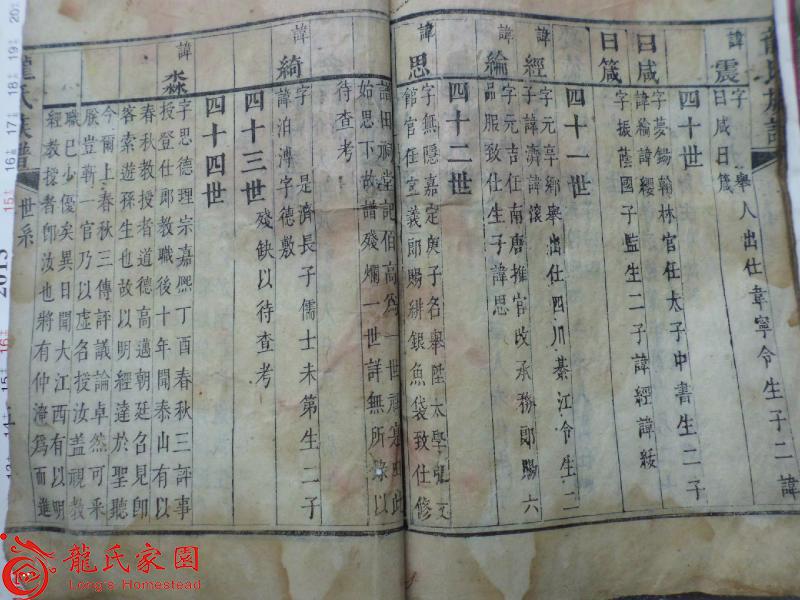 龍氏族譜
諱震
字 舉人出仕韋寧令生子二諱
曰咸曰箴
四十世
曰咸
字夢錫翰林官任太子中書生二子
諱綸諱纓
曰箴
字振蔭國子監生二子諱經諱綏
四十一世
諱經
字元亭鄉舉出仕四川綦江令生二
子諱濟諱滚
諱綸
字元吉任南唐推官改承務郎賜六
品服致仕生子諱思
四十二世
諱思
字無隱嘉定庚子名舉陞太學
館官任宣義郎賜緋銀魚袋致仕修
譜田祠堂記伯高為一世祖
始思下故譜殘爛一世詳無所錄以
待查考
諱綺
字 是濟長子儒士未第生二子
諱泊溥字德敷
四十三世
殘缺以待查考
四十四世
諱淼
字思德理宗嘉熙丁酉春秋三評事
授登仕郎教職後十年聞泰山有以
春秋教授者道德高邁朝廷召見卽
客索遊孫生也故以明經達於聖聽
今爾上春秋三傳評議論卓然可采
朕豈靳一官乃以虛名授汝盖視教
職已少優矣異日聞大江西有以明
經教授者卽汝也將有仲淹為而進
龍氏族譜
世系
2013
龍氏家園
Long's Homestead